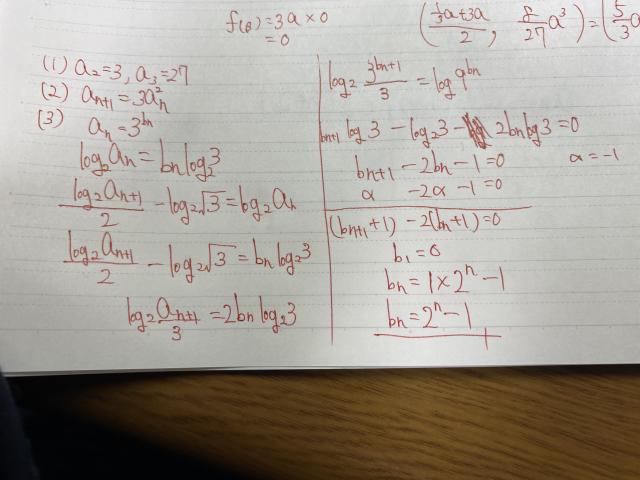 f(θ)=3a×0
=0
(⅓a+3a/2, 8/27 a³) = (5/3 a
(1) a₂=3, a₃=27
(2) aₙ₊₁=3aₙ²
(3) aₙ=3^bₙ
log₂aₙ=bₙlog₂3
log₂aₙ₊₁/2 -log₂√3=log₂aₙ
log₂aₙ₊₁/2 -log₂√3=bₙlog₂3
log₂ aₙ₊₁/3 =2bₙlog₂3
log₂ 3^bₙ₊₁/3 =log9^bₙ
bₙ₊₁ log3 -log₂3- 2bₙlog3=0
bₙ₊₁ -2bₙ-1=0
α=-1
α -2α -1=0
(bₙ₊₁+1) -2(bₙ+1)=0
b₁=0
bₙ=1×2ⁿ-1
bₙ=2ⁿ-1